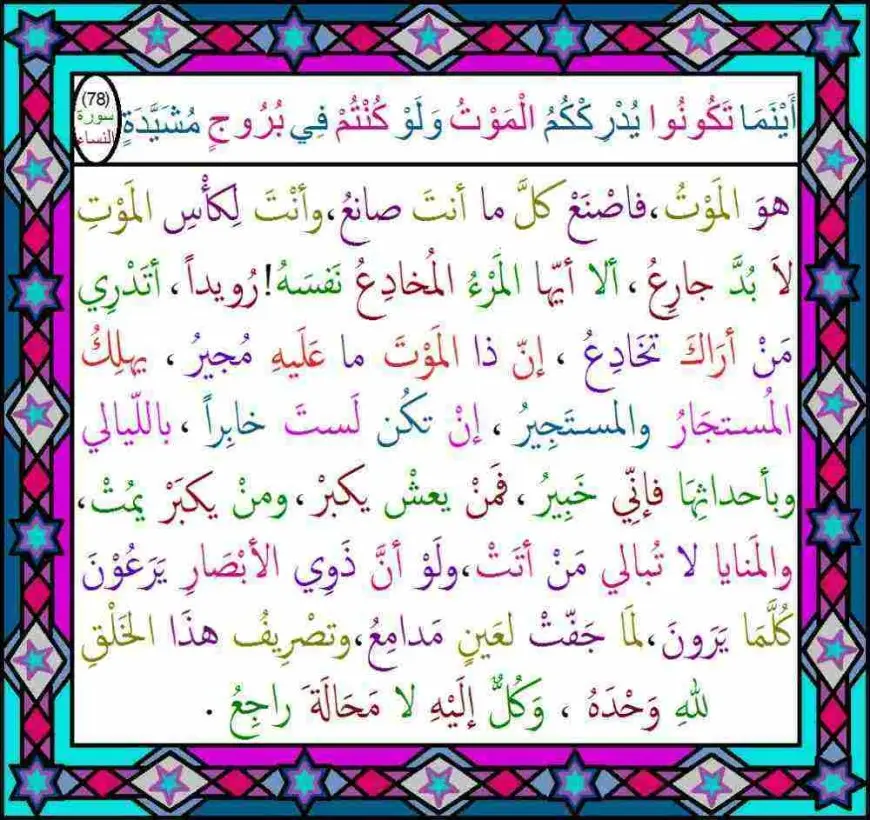 أَيْنَمَا تَكُونُوا يُدْرِكْكُمُ الْمَوْتُ وَلَوْ كُنْتُمْ فِي بُرُوجٍ مُشَيَّدَةٍ
(78)
سورة
النساء
هوَ المَوْتُ،فاصْنَعْ كلَّ ما أنتَ صانعُ،وأنْتَ لِكأْسِ المَوْتِ
لاَ بُدَّ جارِعُ، ألا أيّها المَرْءُ المُخادِعُ نَفسَهُ!رُويداً، أتَدْرِي
مَنْ أرَاكَ تخَادِعُ ، إنّ ذا المَوْتَ ما عَلَيهِ مُجيرُ، يهلِكُ
المُستجَارُ والمستَجِيرُ ، إنْ تكُن لَستَ خابِراً ، باللّيالي
وبأحداثِهَا فإنّي خَبِيرُ ، فَمَنْ يعشْ يكبرْ، ومنْ يكبَرْ يمُتْ،
والمَنايا لا تُبالي مَنْ أتَتْ،ولَوْ أنَّ ذَوِي الأبْصَارِ يَرَعُوْنَ
كُلَّمَا يَرَونَ،لَمَا جَفّتْ لعَينٍ مَدامِعُ،وتصْرِيفُ هذَا الخَلْقِ
للهِ وَحْدَهُ ، وَكُلٌّ إلَيْهِ لا مَحَالَةَ راجِعُ .